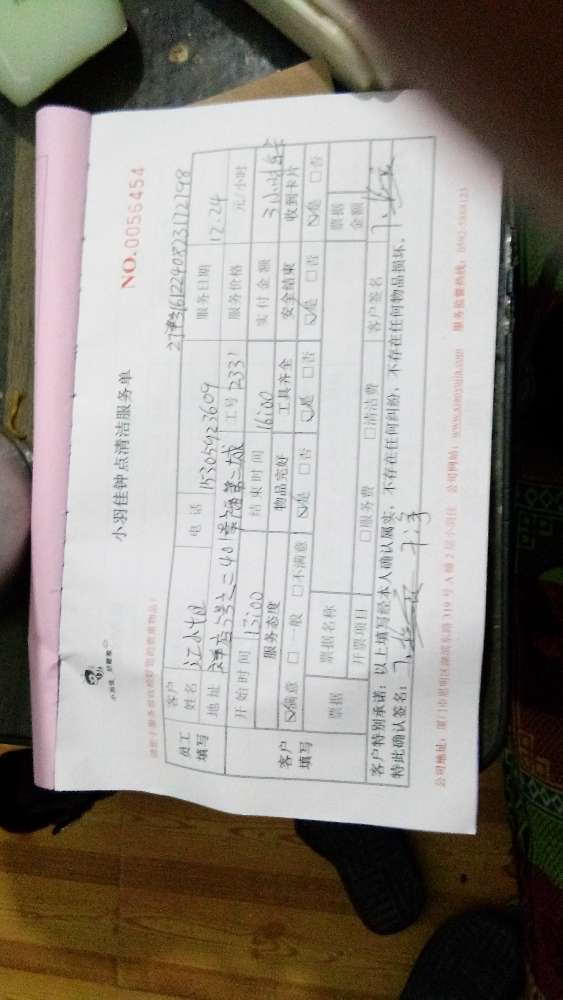 小羽佳钟点清洁服务单
NO.0056454
小羽佳 好管家
请您于服务前收拾好您的贵重物品!
员工填写
客户姓名 江小姐 电话 15305923609 服务日期 12.24
地址 工号 2331 服务价格 元/小时
开始时间 13:00 结束时间 16:00 实付金额 3小时
客户填写
服务态度 物品完好 工具齐全 安全结束 收到卡片
☑满意 □一般 □不满意 ☑是 □否 ☑是 □否 ☑是 □否 ☑是 □否
票据 票据名称 票据金额
开票项目 □服务费 □清洁费 客户签名
客户特别承诺:以上填写经本人确认属实,不存在任何纠纷,不存在任何物品损坏,
特此确认签名:
公司地址:厦门市思明区湖滨东路319号A幢2层小羽佳 公司网站:www.xiaoyujia.com 服务监督热线:0592-5888123